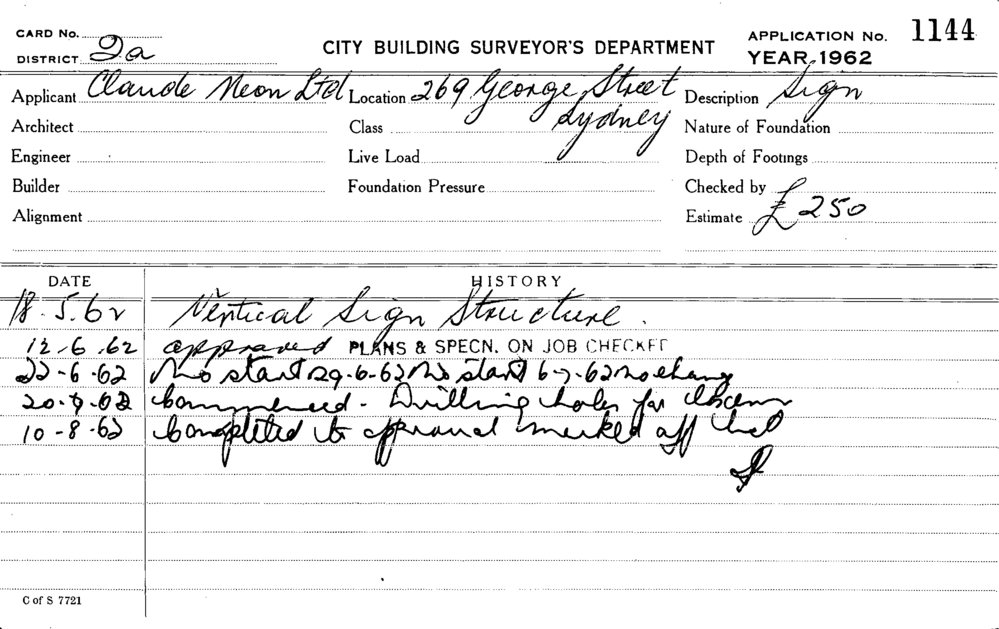 CARD No.
DISTRICT 2a
CITY BUILDING SURVEYOR'S DEPARTMENT
APPLICATION No. 1144
YEAR 1962
Applicant Claude Neon Ltd Location 269 George Street Description Sign
Sydney
Architect Class Nature of Foundation
Engineer Live Load Depth of Footings
Builder Foundation Pressure Checked by
Alignment Estimate £250
DATE HISTORY
18.5.62 Vertical Sign Structure.
12.6.62 approved PLANS & SPECN. ON JOB CHECKED
22-6-62 No start 29-6-62 No start 6-7-62 no chang
20.7.62 Commenced - Drilling holes for
10-8-62 Completed to approval marked off
C of S 7721